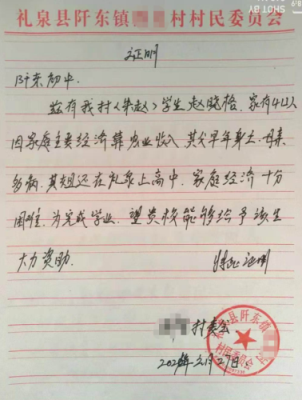 礼泉县阡东镇 村村民委员会
证明
阡东初中:
兹有我村(朱赵)学生赵晓格,家有4口人
因家庭主要经济靠农业收入,其父早年去世,母亲
多病,其姐还在礼泉上高中,家庭经济十分
困难,为完成学业,望贵校能够给予该生
大力资助。 特此证明
村委会
202 年 月27日
礼泉县阡东镇
村民委员会